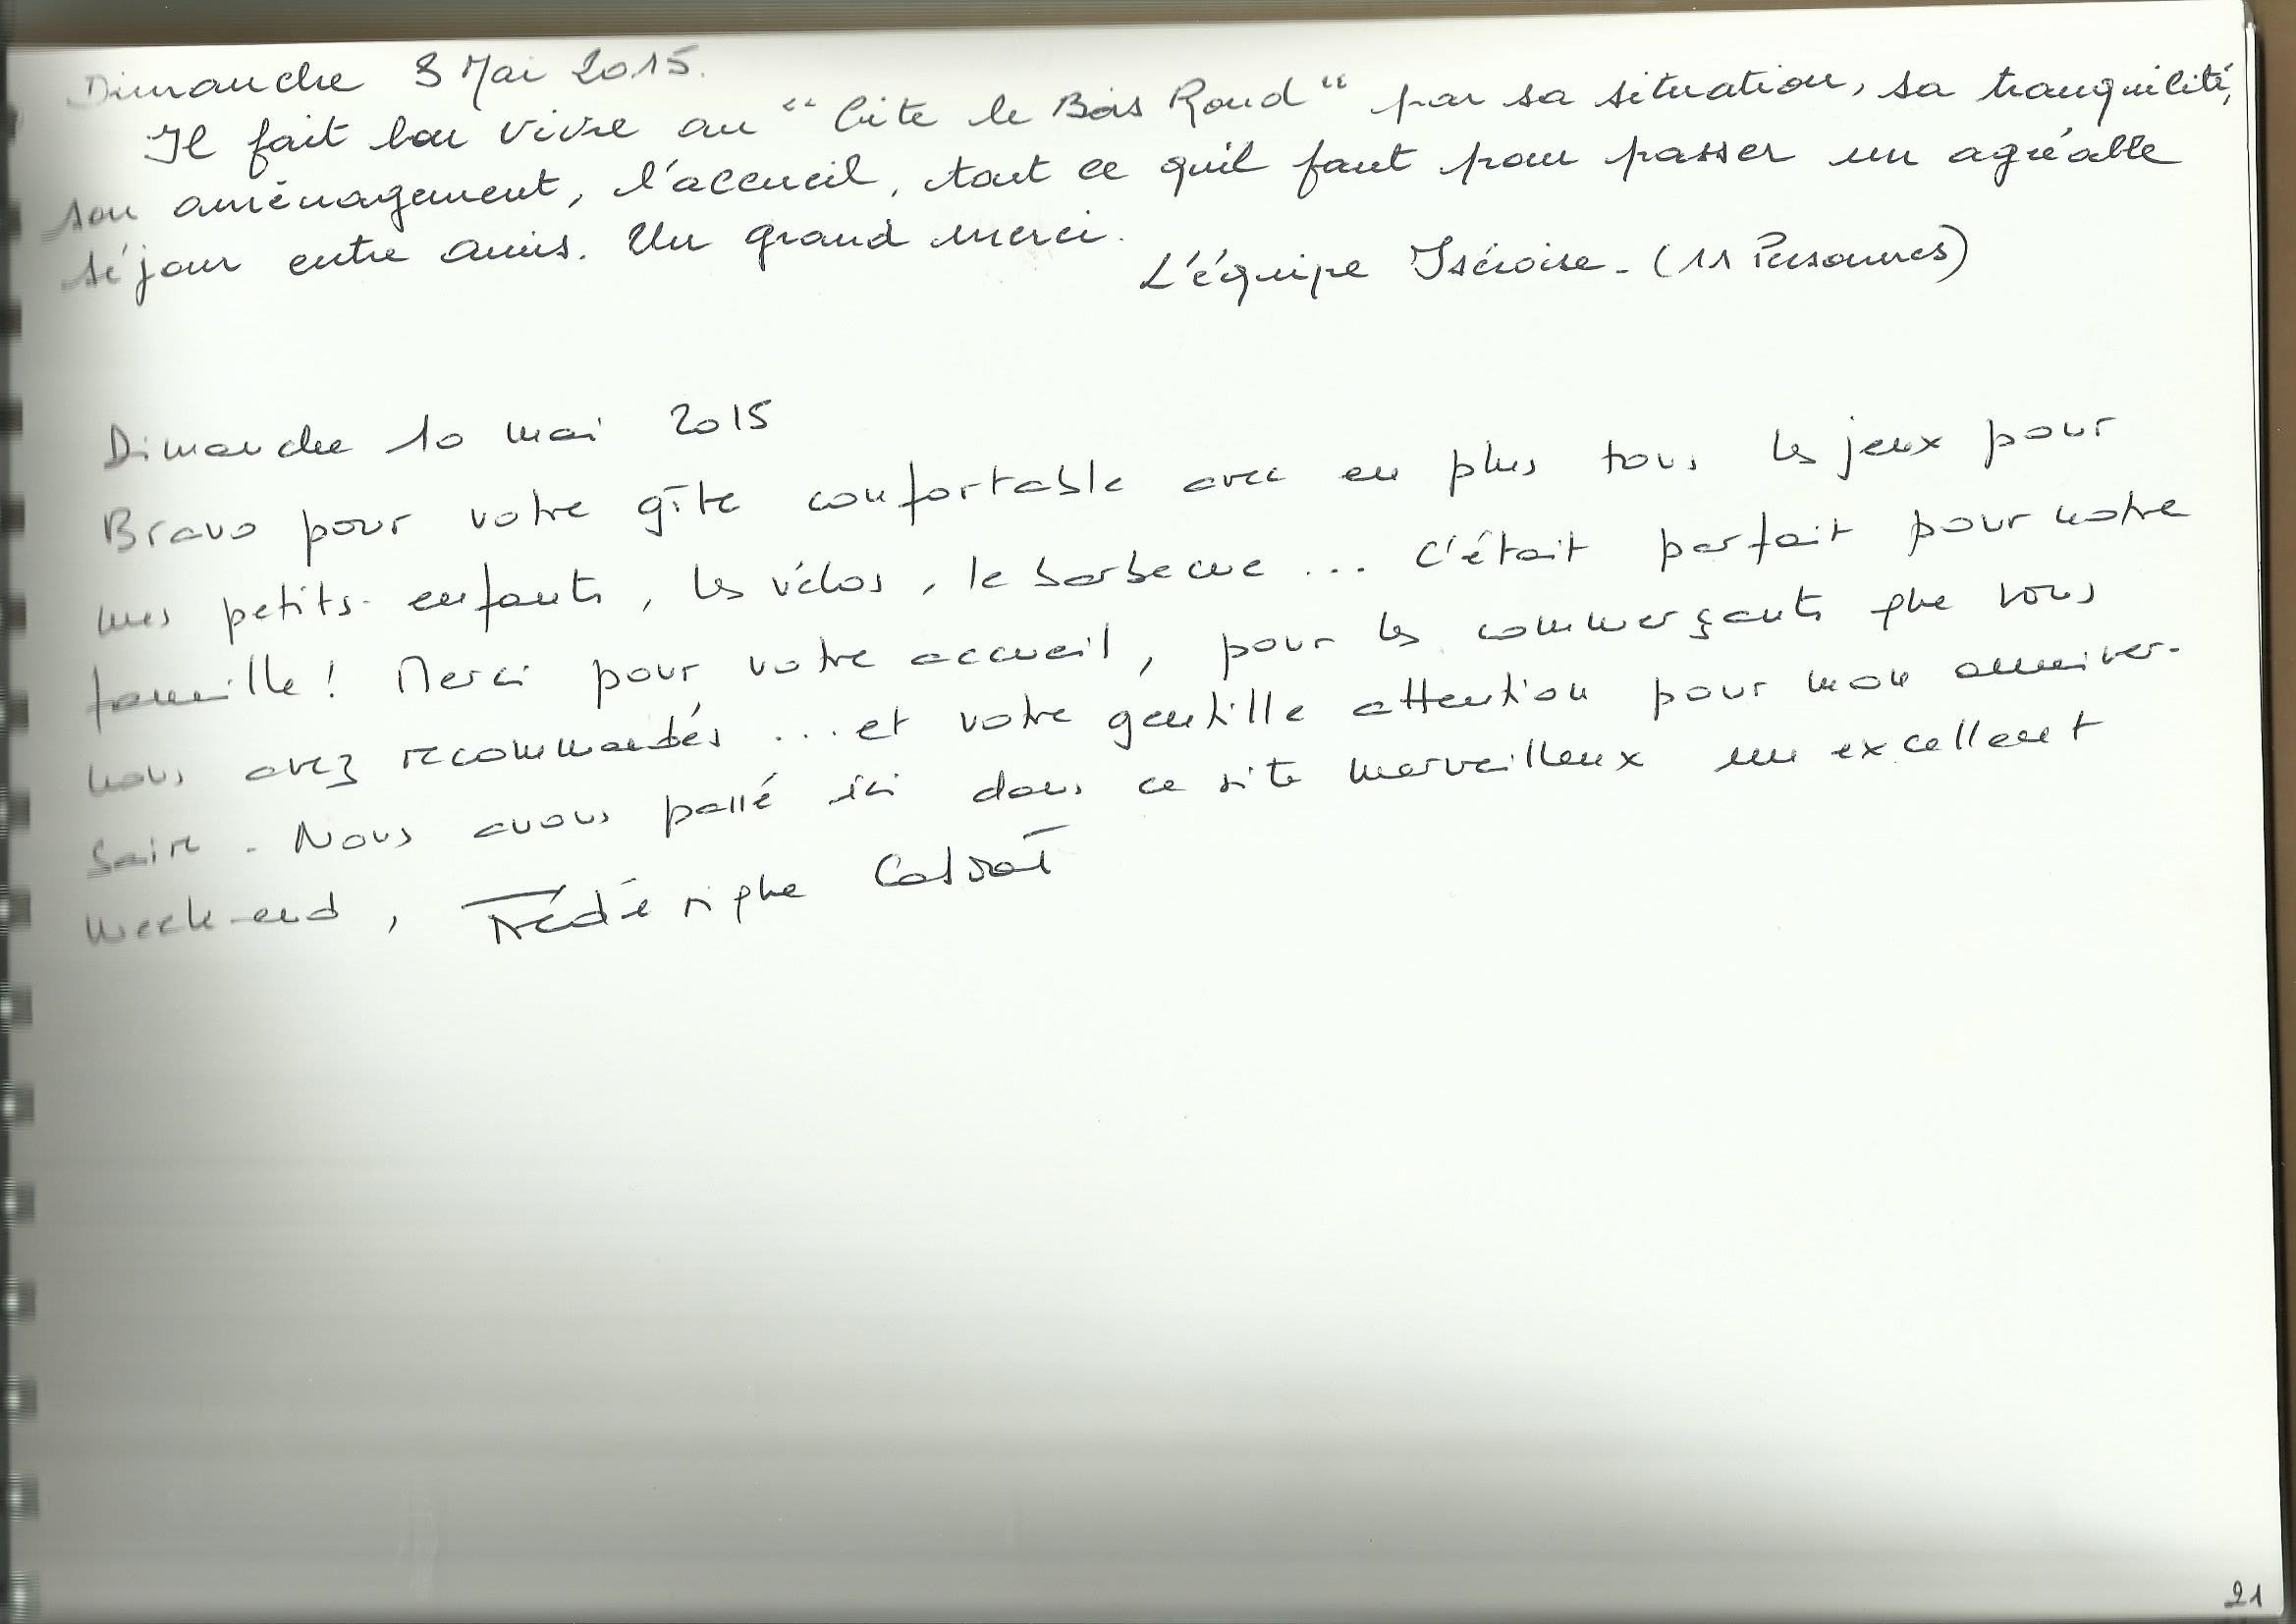 Dimanche 3 Mai 2015.
Il fait bon vivre au "Gite le Bois Rond" par sa situation, sa tranquilité,
son aménagement, l'accueil, tout ce qu'il faut pour passer un agréable
séjour entre amis. Un grand merci.
L'équipe Iséroise - (11 Personnes)
Dimanche 10 mai 2015
Bravo pour votre gîte confortable avec en plus tous les jeux pour
mes petits-enfants, les vélos, le barbecue ... C'était parfait pour notre
famille ! Merci pour votre accueil, pour les commerçants que vous
nous avez recommandés ... et votre gentille attention pour mon anniver-
saire. Nous avons passé ici dans ce site merveilleux un excellent
week-end,
21